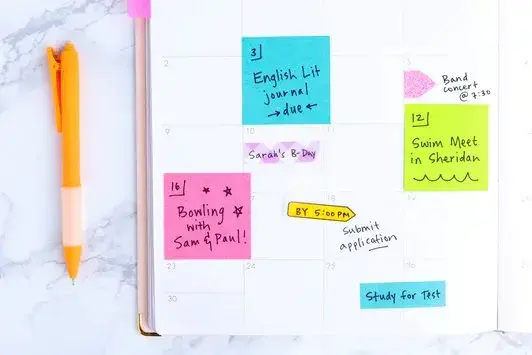 2
3
English Lit
journal
→due←
Band
concert
@ 7:30
9
10
12
Swim Meet
in Sheridan
Sarah's B-Day
16
Bowling
with
Sam & Paul!
BY 5:00 PM
Submit
application
23
24
25
26
Study for Test
30